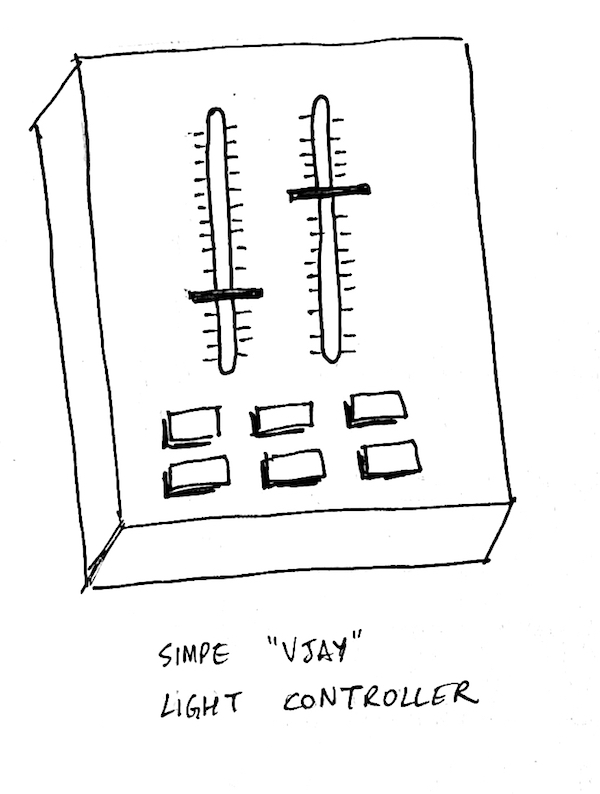 SIMPE "VJAY"
LIGHT CONTROLLER